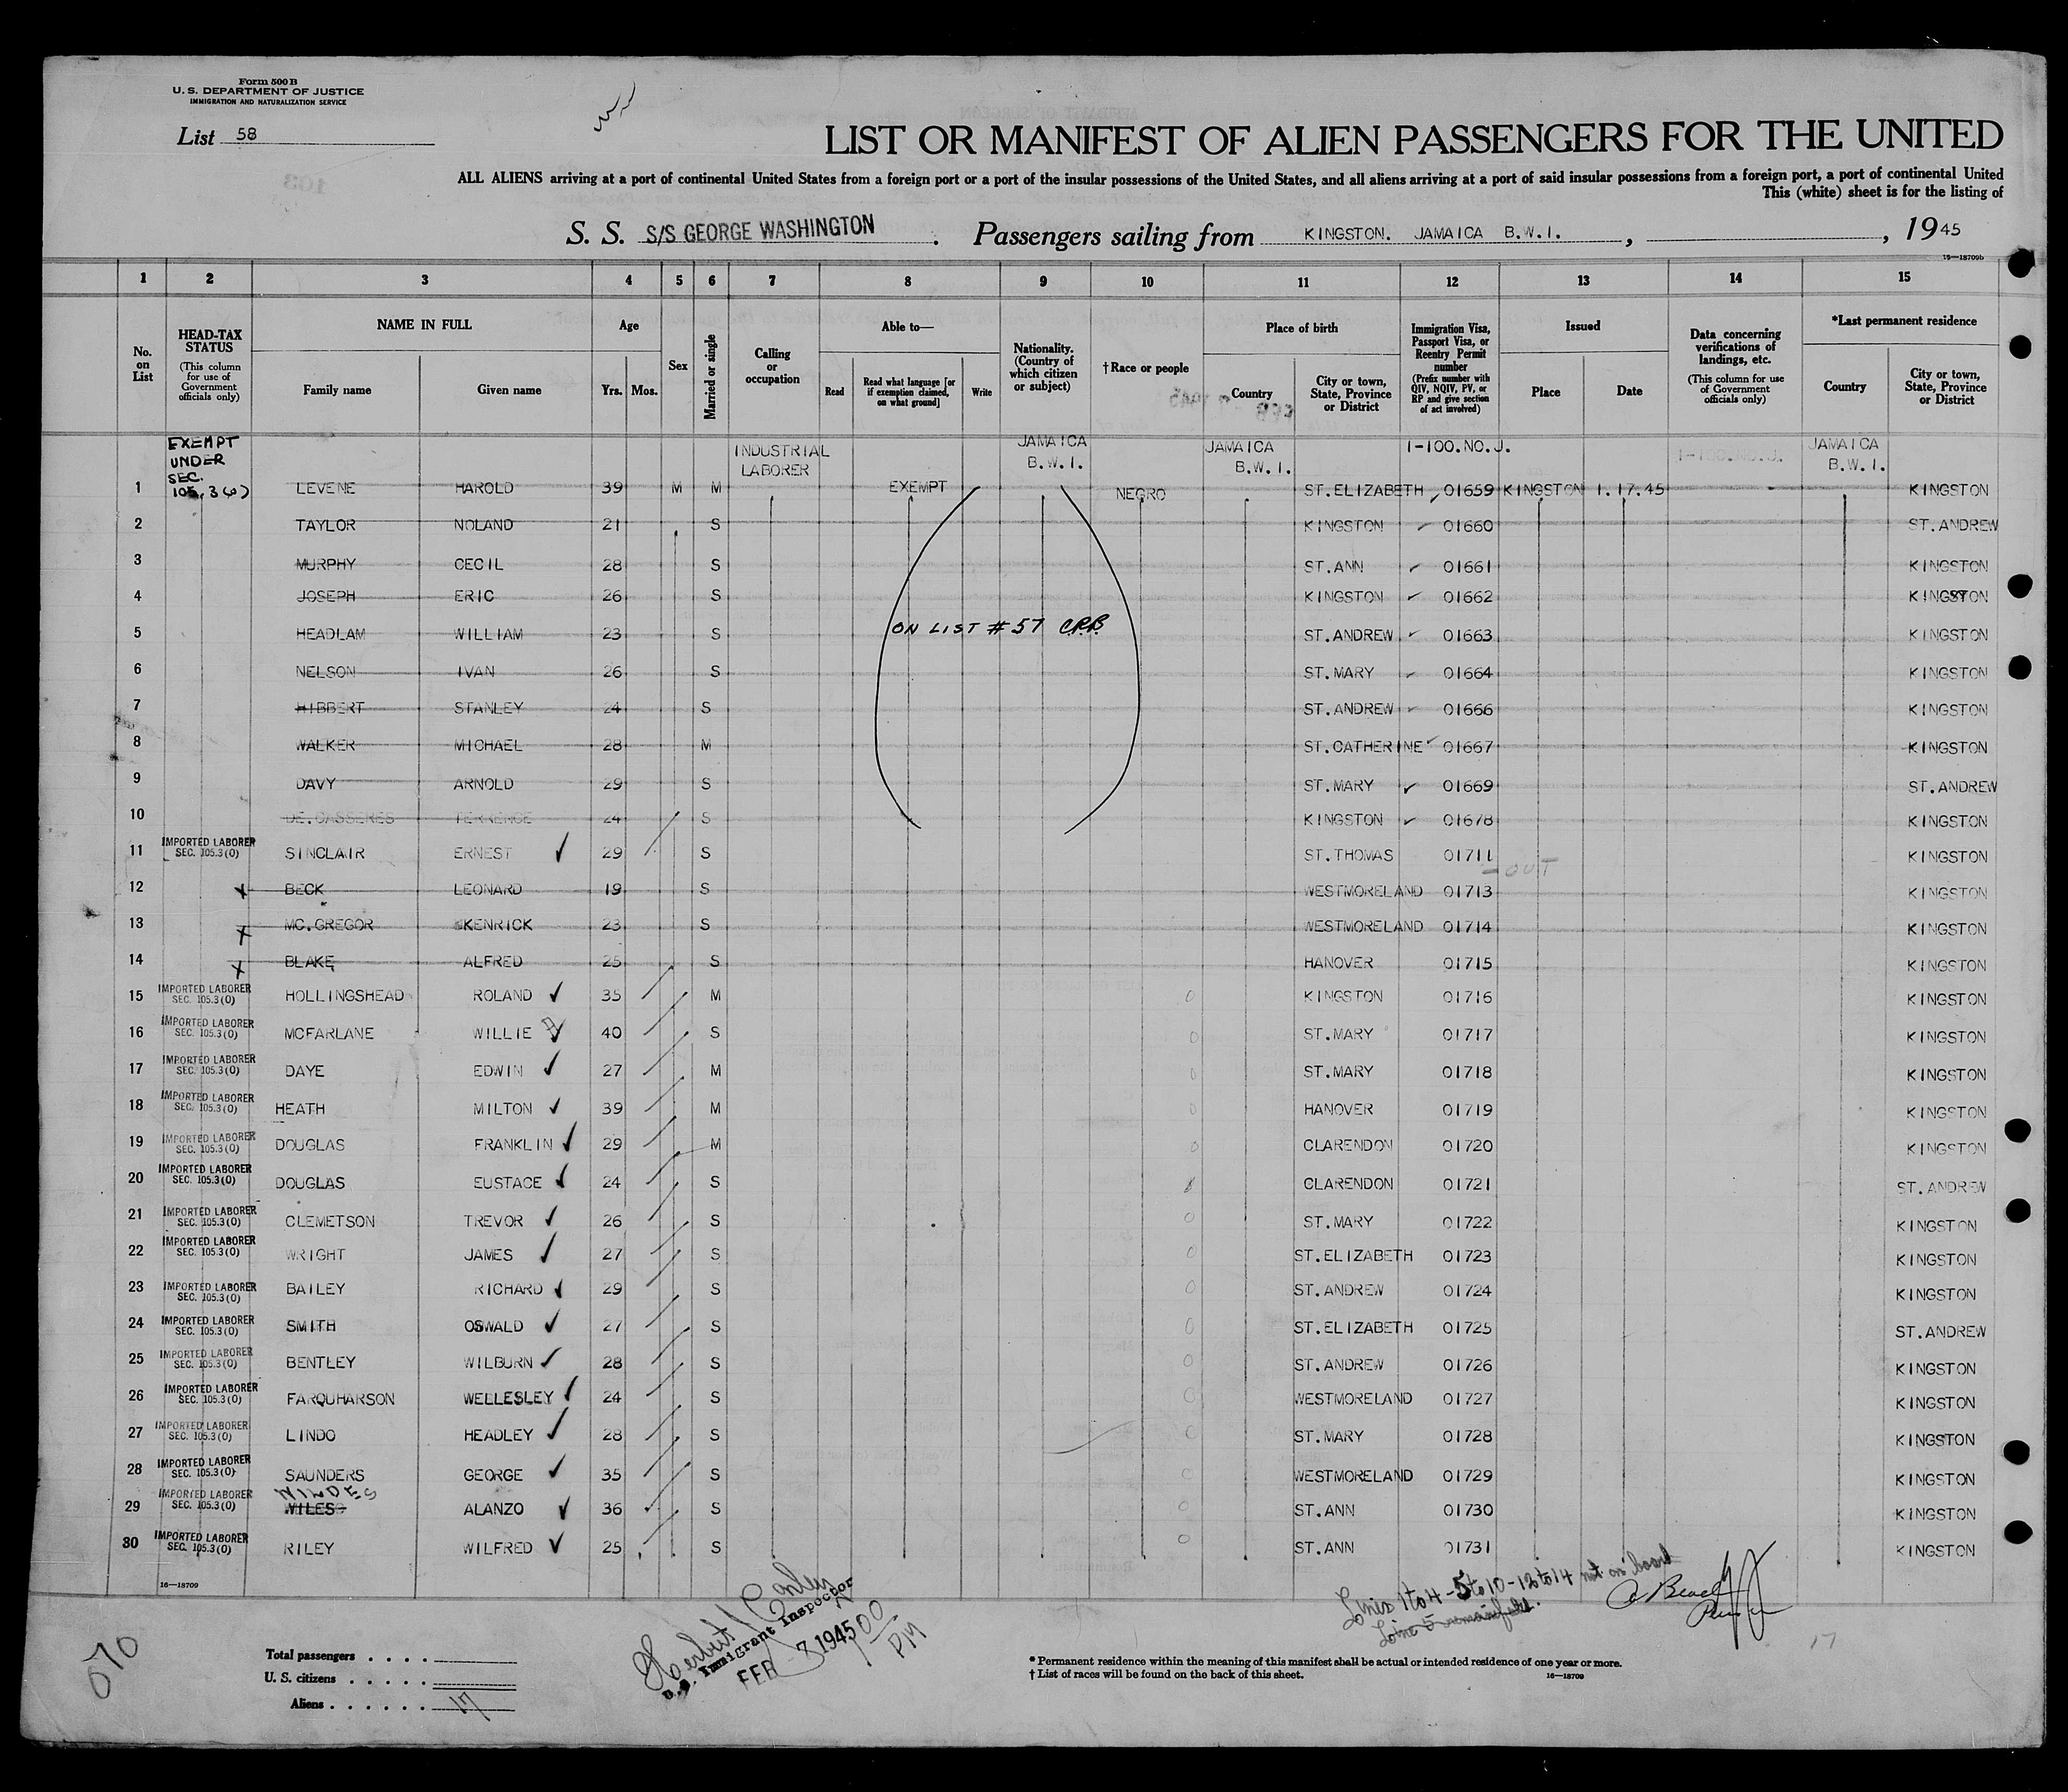 Form 500 B
U. S. DEPARTMENT OF JUSTICE
IMMIGRATION AND NATURALIZATION SERVICE
List 58
LIST OR MANIFEST OF ALIEN PASSENGERS FOR THE UNITED
ALL ALIENS arriving at a port of continental United States from a foreign port or a port of the insular possessions of the United States, and all aliens arriving at a port of said insular possessions from a foreign port, a port of continental United
This (white) sheet is for the listing of
S. S. S/S GEORGE WASHINGTON . Passengers sailing from KINGSTON. JAMAICA B.W.I. , , 19 45
16—18709b
1 2 3 4 5 6 7 8 9 10 11 12 13 14 15
No. on List
HEAD-TAX STATUS (This column for use of Government officials only)
NAME IN FULL
Family name Given name
Age
Yrs. Mos.
Sex
Married or single
Calling or occupation
Able to—
Read Read what language [or if exemption claimed, on what ground] Write
Nationality. (Country of which citizen or subject)
†Race or people
Place of birth
Country City or town, State, Province or District
Immigration Visa, Passport Visa, or Reentry Permit number (Prefix number with QIV, NQIV, PV, or RP and give section of act involved)
Issued
Place Date
Data concerning verifications of landings, etc. (This column for use of Government officials only)
*Last permanent residence
Country City or town, State, Province or District
EXEMPT UNDER SEC. 105.3(o) INDUSTRIAL LABORER JAMAICA B.W.I. JAMAICA B.W.I. 1-100.NO.J. 1-100.NO.J. JAMAICA B.W.I.
1 LEVENE HAROLD 39 M M EXEMPT NEGRO ST.ELIZABETH 01659 KINGSTON 1.17.45 KINGSTON
2 TAYLOR NOLAND 21 S KINGSTON 01660 ST.ANDREW
3 MURPHY CECIL 28 S ST.ANN 01661 KINGSTON
4 JOSEPH ERIC 26 S KINGSTON 01662 KINGSTON
5 HEADLAM WILLIAM 23 S ON LIST #57 C.R.B. ST.ANDREW 01663 KINGSTON
6 NELSON IVAN 26 S ST.MARY 01664 KINGSTON
7 HIBBERT STANLEY 24 S ST.ANDREW 01666 KINGSTON
8 WALKER MICHAEL 28 M ST.CATHERINE 01667 KINGSTON
9 DAVY ARNOLD 29 S ST.MARY 01669 ST.ANDREW
10 DE.CASSERES TERRENCE 24 S KINGSTON 01678 KINGSTON
11 IMPORTED LABORER SEC. 105.3(0) SINCLAIR ERNEST 29 S ST.THOMAS 01711 KINGSTON
-OUT
12 X BECK LEONARD 19 S WESTMORELAND 01713 KINGSTON
13 X MC.GREGOR KENRICK 23 S WESTMORELAND 01714 KINGSTON
14 X BLAKE ALFRED 25 S HANOVER 01715 KINGSTON
15 IMPORTED LABORER SEC. 105.3(0) HOLLINGSHEAD ROLAND 35 M KINGSTON 01716 KINGSTON
16 IMPORTED LABORER SEC. 105.3(0) MCFARLANE WILLIE 40 S ST.MARY 01717 KINGSTON
17 IMPORTED LABORER SEC. 105.3(0) DAYE EDWIN 27 M ST.MARY 01718 KINGSTON
18 IMPORTED LABORER SEC. 105.3(0) HEATH MILTON 39 M HANOVER 01719 KINGSTON
19 IMPORTED LABORER SEC. 105.3(0) DOUGLAS FRANKLIN 29 M CLARENDON 01720 KINGSTON
20 IMPORTED LABORER SEC. 105.3(0) DOUGLAS EUSTACE 24 S CLARENDON 01721 ST.ANDREW
21 IMPORTED LABORER SEC. 105.3(0) CLEMETSON TREVOR 26 S ST.MARY 01722 KINGSTON
22 IMPORTED LABORER SEC. 105.3(0) WRIGHT JAMES 27 S ST.ELIZABETH 01723 KINGSTON
23 IMPORTED LABORER SEC. 105.3(0) BAILEY RICHARD 29 S ST.ANDREW 01724 KINGSTON
24 IMPORTED LABORER SEC. 105.3(0) SMITH OSWALD 27 S ST.ELIZABETH 01725 ST.ANDREW
25 IMPORTED LABORER SEC. 105.3(0) BENTLEY WILBURN 28 S ST.ANDREW 01726 KINGSTON
26 IMPORTED LABORER SEC. 105.3(0) FARQUHARSON WELLESLEY 24 S WESTMORELAND 01727 KINGSTON
27 IMPORTED LABORER SEC. 105.3(0) LINDO HEADLEY 28 S ST.MARY 01728 KINGSTON
28 IMPORTED LABORER SEC. 105.3(0) SAUNDERS GEORGE 35 S WESTMORELAND 01729 KINGSTON
WINDES
29 IMPORTED LABORER SEC. 105.3(0) WILES ALANZO 36 S ST.ANN 01730 KINGSTON
30 IMPORTED LABORER SEC. 105.3(0) RILEY WILFRED 25 S ST.ANN 01731 KINGSTON
16—18709
Lines 1 to 4 - 5 to 10 - 12 to 14 not on board
Line 5
U.S. Immigrant Inspector
FEB -3 1945
PM
070
17
Total passengers . . . .
U. S. citizens . . . . .
Aliens . . . . . . 17
* Permanent residence within the meaning of this manifest shall be actual or intended residence of one year or more.
† List of races will be found on the back of this sheet.
16—18709